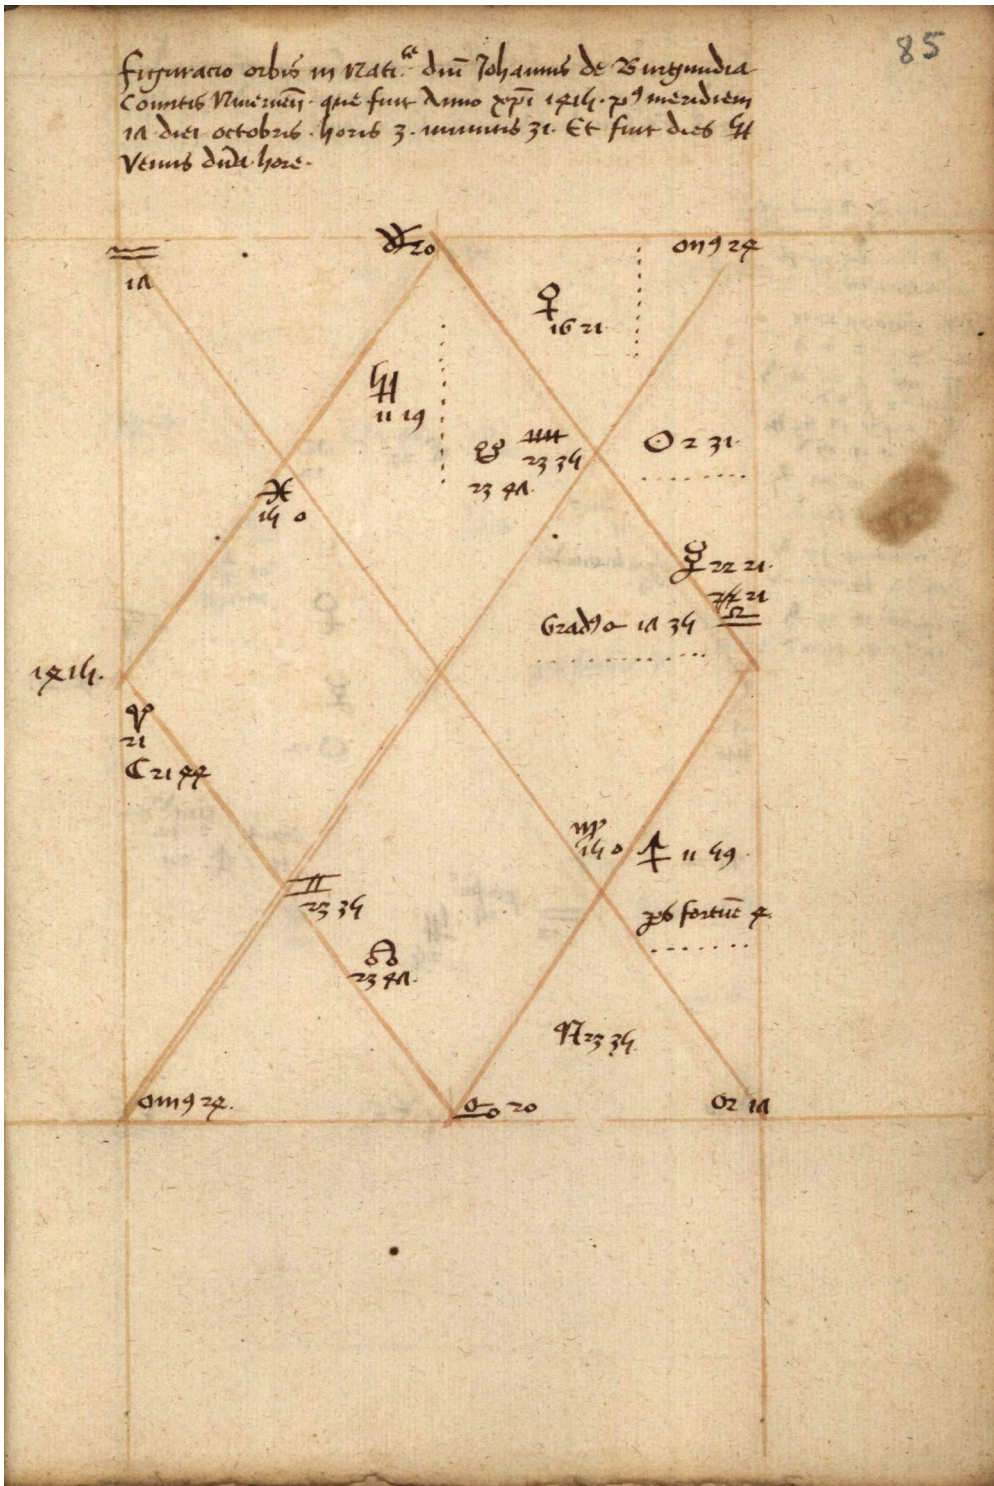 85
Figuracio orbis in Nati.te dn̄i Johannis de Burgundia
Comitis Nivernen̄. que fuit Anno xp̄i 1415. pꝰ meridiem
17 diei octobris. horis 3. minutis 31. Et fuit dies ♃
Venus dn̄a hore.
♒ 17
♑ 20
24
♀ 16 21
♃ 11 19
☋ 23 47.
♏ 23 35
☉ 2 31.
♓ 15 0
☿ 22 21.
♎ 21
Gradꝰ 17 35
1415.
♈ 21
☾ 21 44
♍ 15 0
♂ 11 59.
♊ 23 35
ps fortune 4.
☊ 23 47.
♄ 23 35.
24.
♋ 20
17